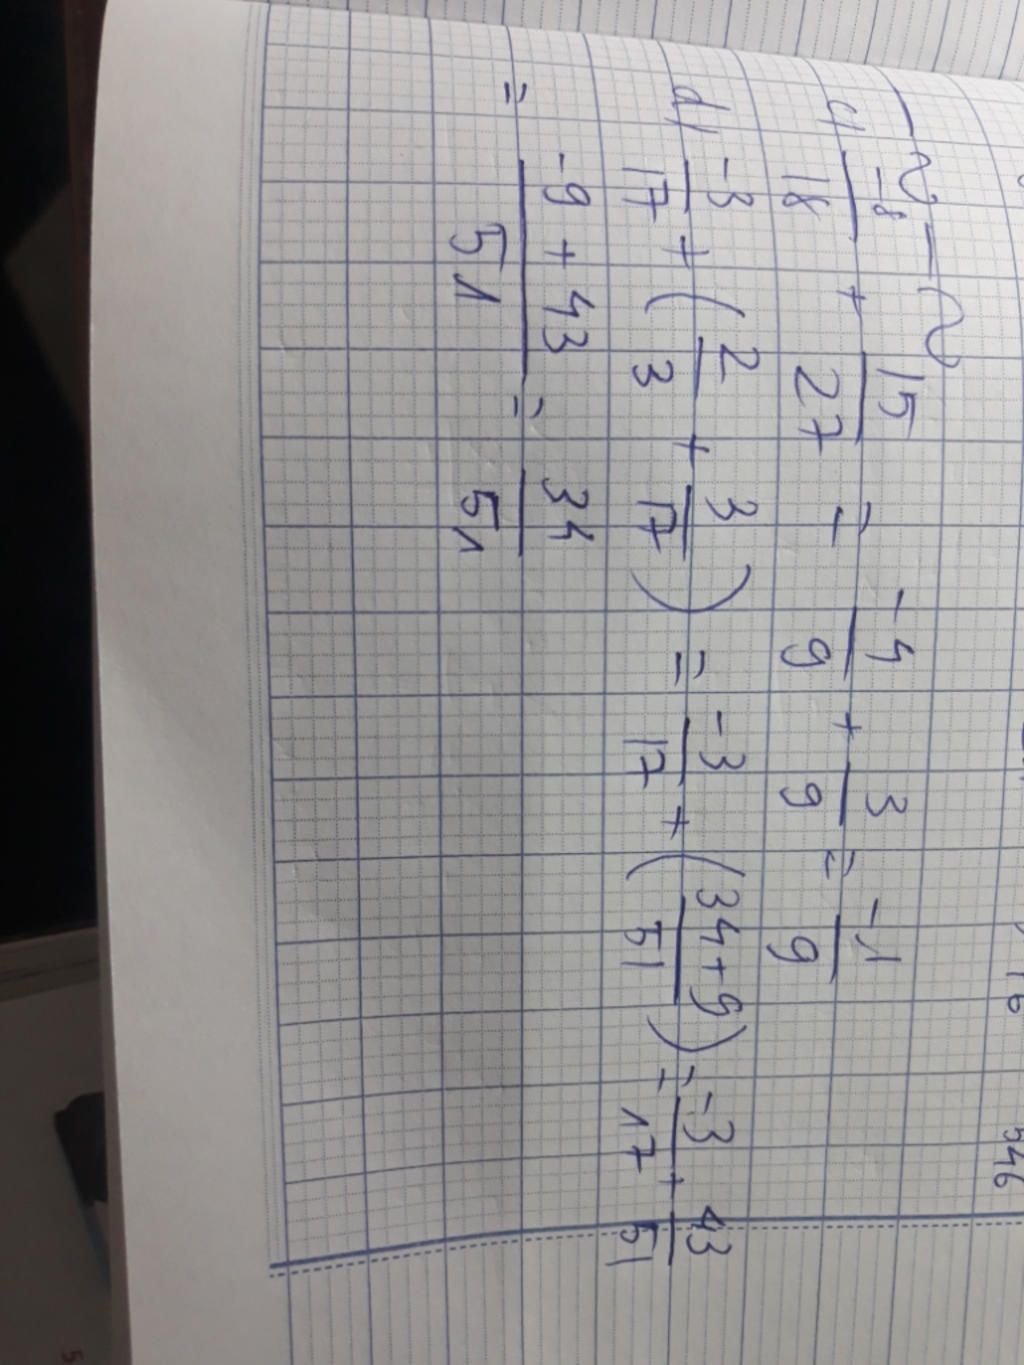 c) -8/18 + 15/27 = -4/9 + 3/9 = -1/9
d) -3/17 + (2/3 + 3/17) = -3/17 + (34+9/51) = -3/17 + 43/51
= -9 + 43/51 = 34/51
546
5